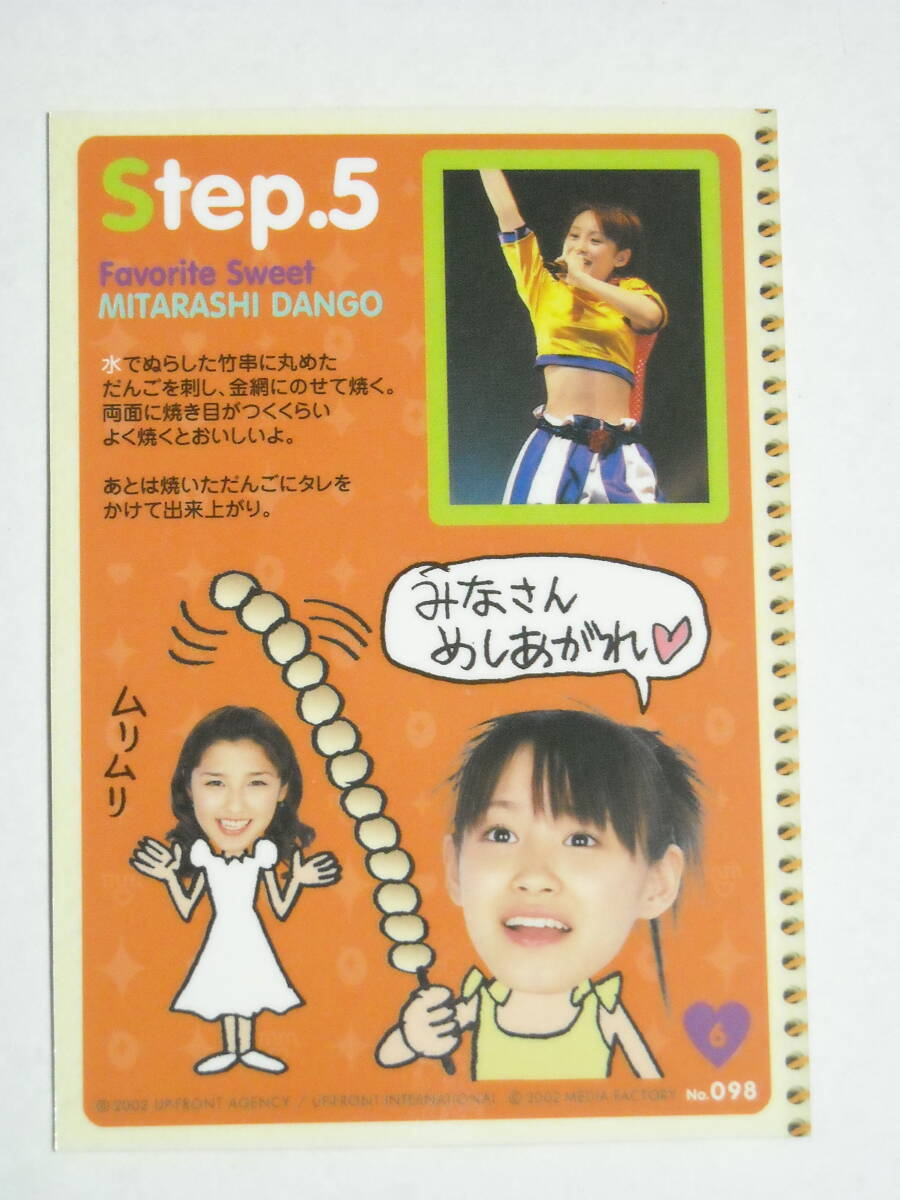 Step.5
Favorite Sweet
MITARASHI DANGO
水でぬらした竹串に丸めた
だんごを刺し、金網にのせて焼く。
両面に焼き目がつくくらい
よく焼くとおいしいよ。
あとは焼いただんごにタレを
かけて出来上がり。
みなさん
めしあがれ♡
ムリムリ
6
© 2002 UP-FRONT AGENCY / UP-FRONT INTERNATIONAL © 2002 MEDIA FACTORY No.098